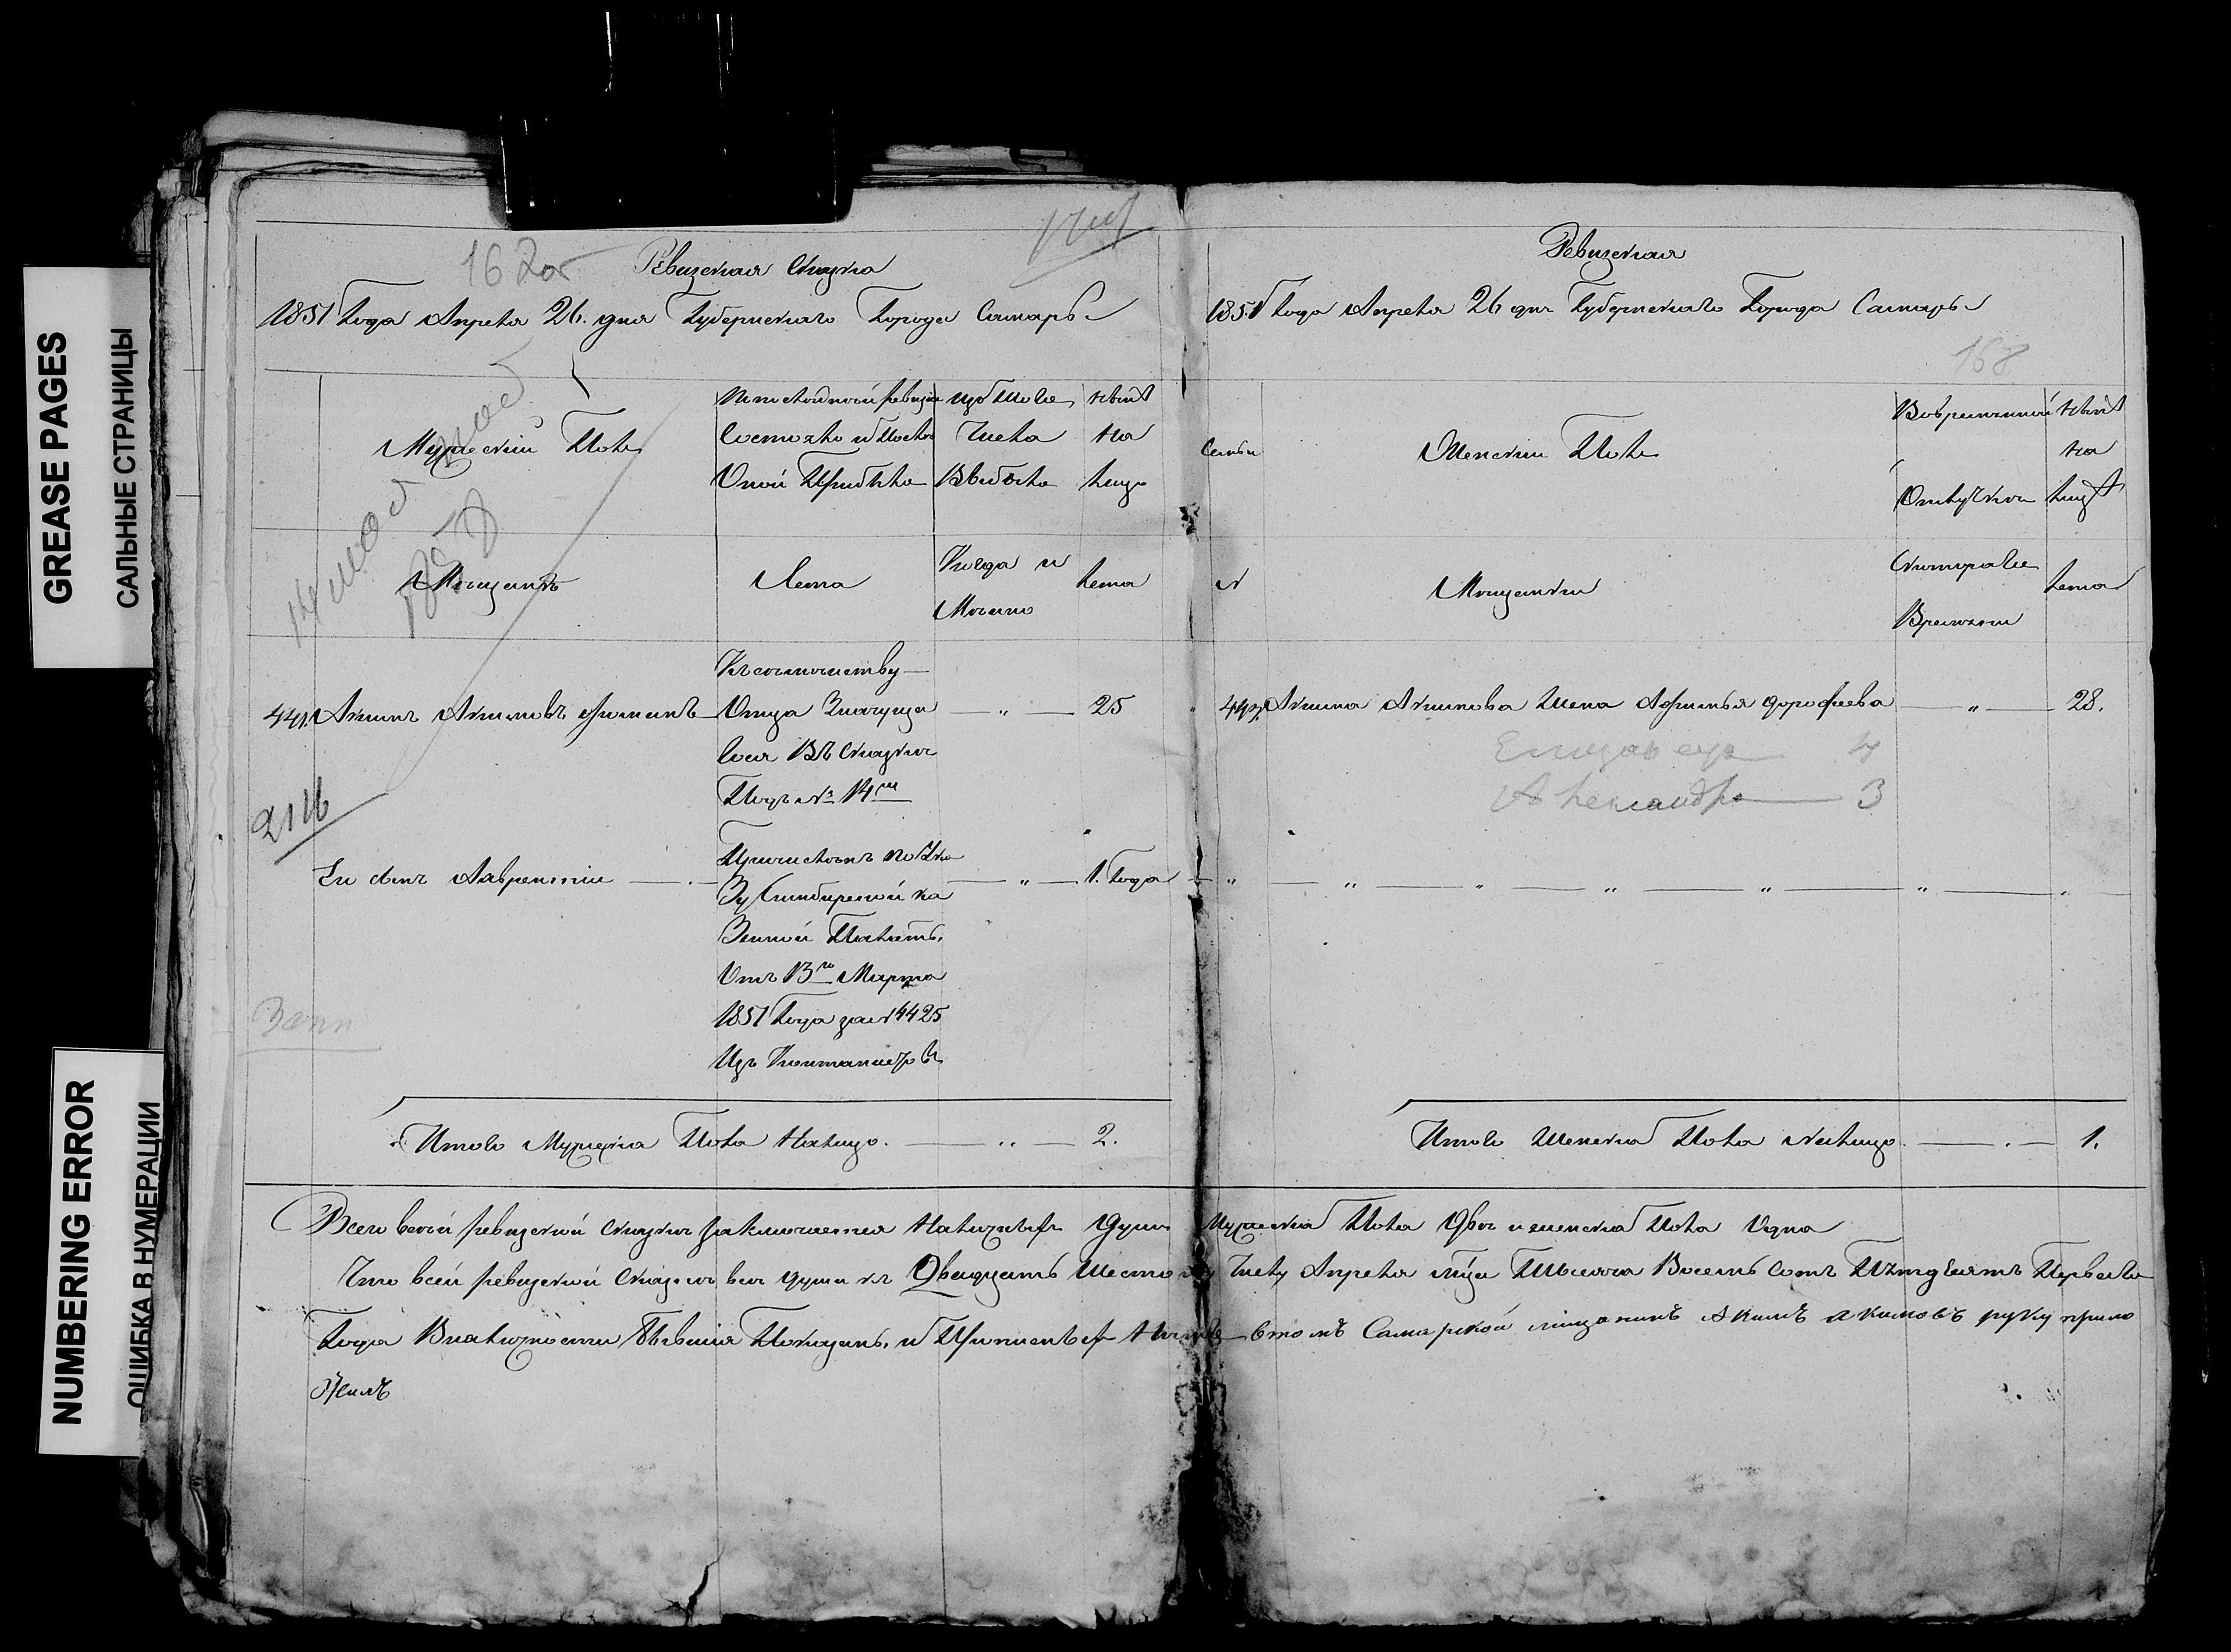 GREASE PAGES
САЛЬНЫЕ СТРАНИЦЫ
NUMBERING ERROR
ОШИБКА В НУМЕРАЦИИ
167об
Ревизская Сказка
1851 Года Апреля 26. дня Губернскаго Города Самары
Мужескій Полъ
По последней ревизіи
состояло и после
Оной Прибыло
изъ того
Числа
Выбыло
Ныне
на
лицо
Мещанъ
Лета
Когда и
Лета
441. Акимъ Акимовъ
Отца Значуща
25
гося Въ Сказке
Подъ № 14м
2116
Его сынъ Лаврентій
Причисленъ по Ука
1. Года
Зу Симбирской Ка
Зенной Палаты
Отъ 13го Марта
1851 Года за № 4425
Изъ Кантонистовъ
Итого Мужеска Пола Налицо. 2.
Ревизская
1851 Года Апреля 26 дня Губернскаго Города Самары
168
Семьи
Женскій Полъ
Во временной
Отлучке
Ныне
на
лицо
№
Мещанки
Съ котораго
Времени
Лета
441. Акима Акимова Жена Афимья Дорофеева 28.
Елизавета 4
Александра 3
Итого Женска Пола Налицо 1.
Всего в сей ревизской сказке заключается Наличныхъ душъ Мужеска Пола Две и женска Пола Одна
Что в сей ревизской Сказке все души къ Двадцать Шестому Числу Апреля м͠ца Тысяча Восемь сотъ Пятдесятъ Перваго
Года В наличности Бывшія Показаны, и Прописныхъ Нетъ в томъ Самарской мещанинъ Акимъ Акимовъ руку прило
жилъ